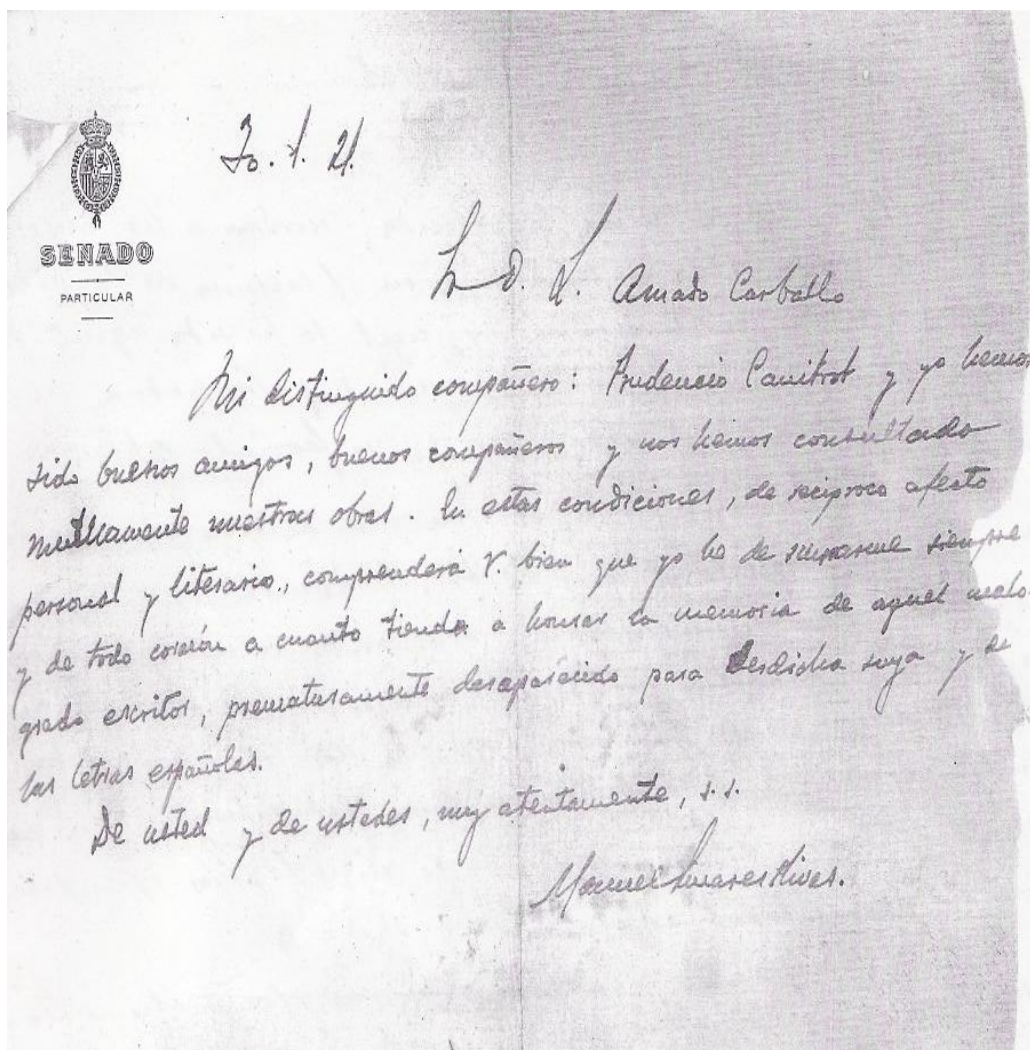 SENADO
PARTICULAR
Sr D. L. Amado Carballo
Mi distinguido compañero: Prudencio Canitrot y yo hemos
sido buenos amigos, buenos compañeros y nos hemos consultado
mutuamente nuestras obras. En estas condiciones, de recíproco afecto
personal y literario, comprenderá V. bien que yo he de sumarme siempre
y de todo corazón a cuanto tienda a honrar la memoria de aquel malo-
grado escritor, prematuramente desaparecido para desdicha suya y de
las letras españolas.
De usted y de ustedes, muy atentamente, s.s.
Manuel Linares Rivas.